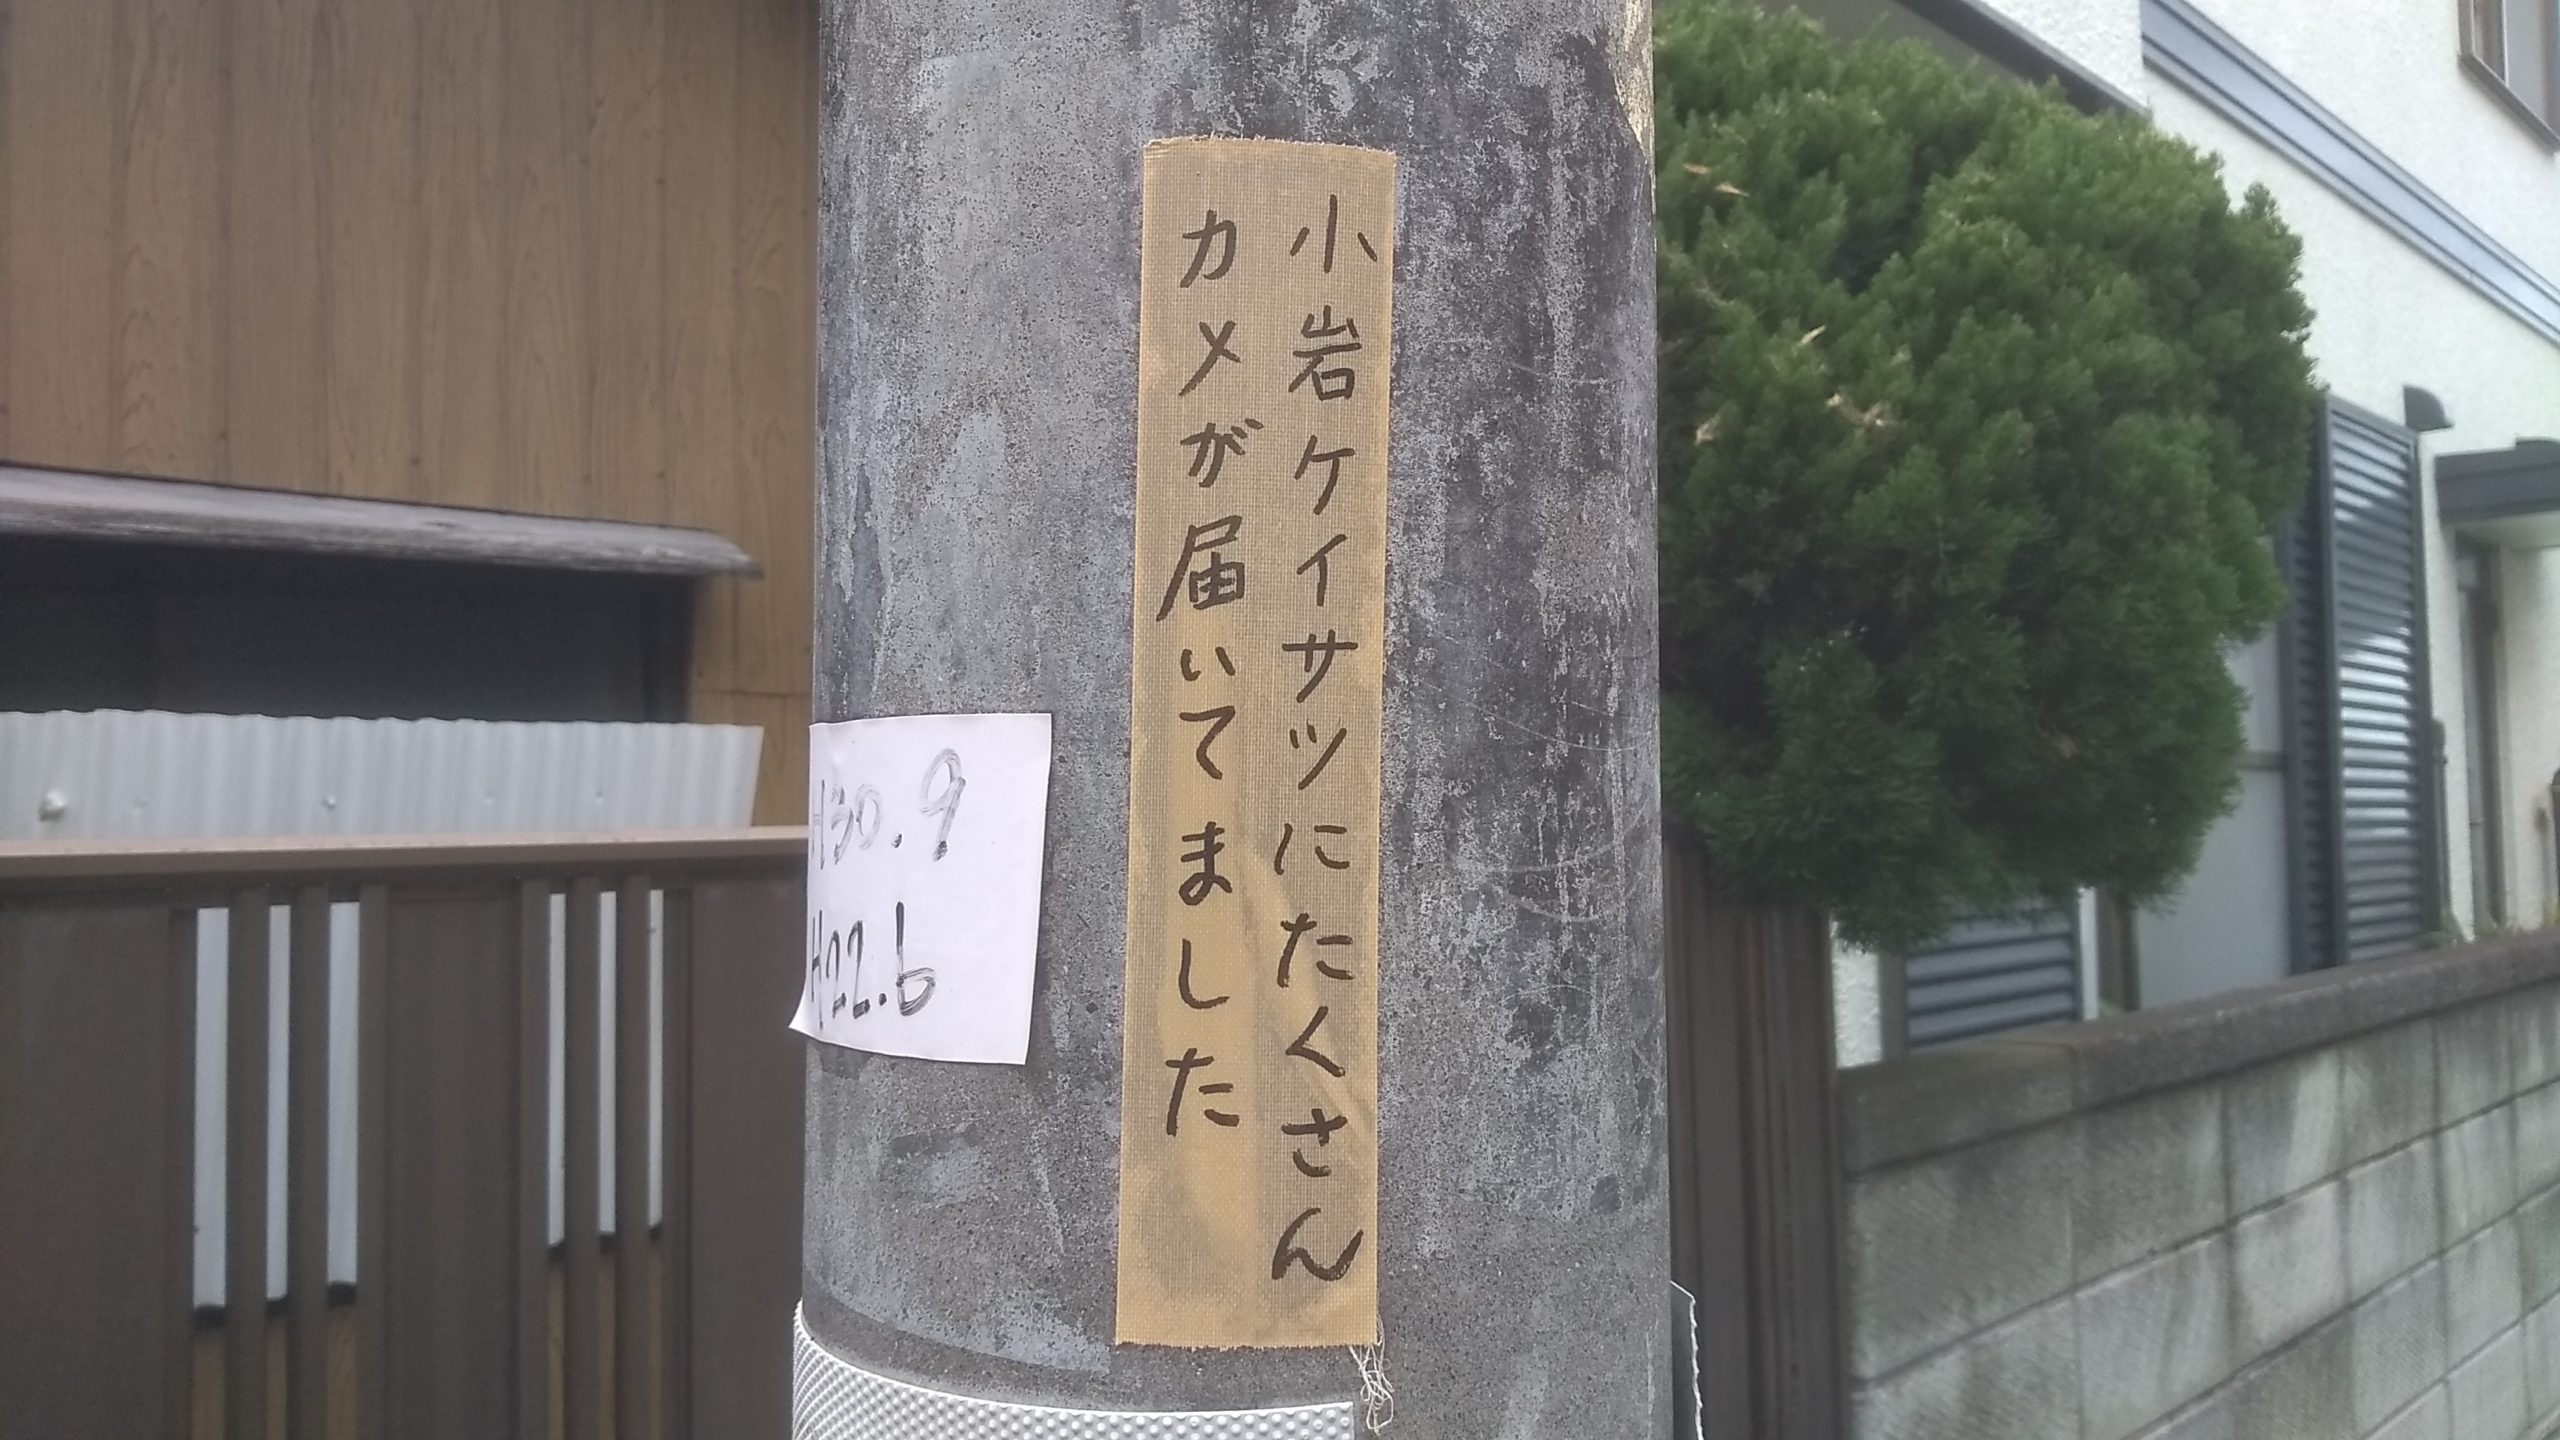 小岩ケイサツにたくさん
カメが届いてました
H30.9
H22.6